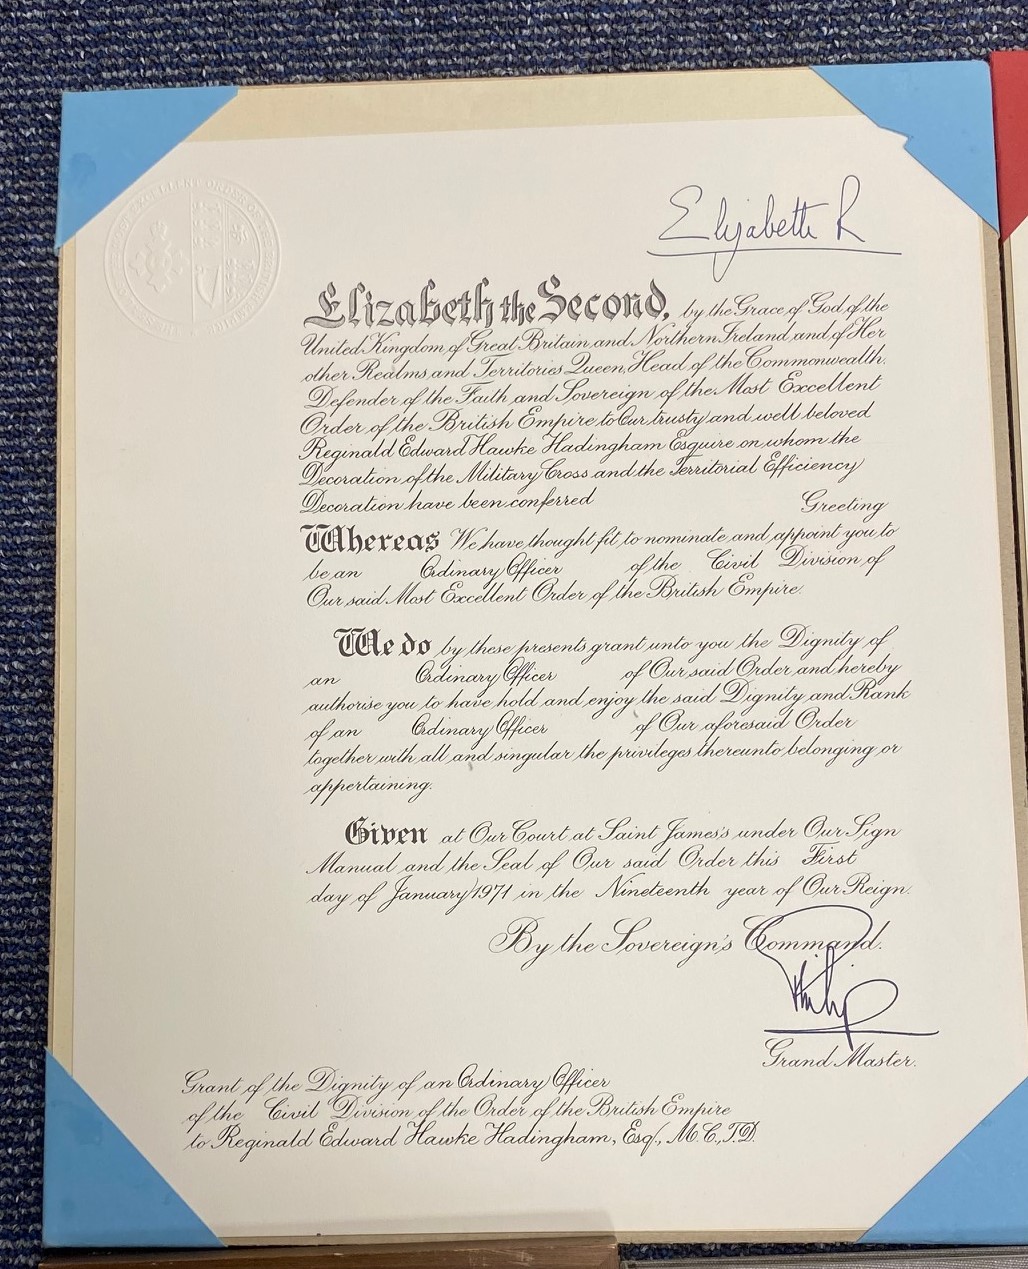 Elizabeth R
Elizabeth the Second, by the Grace of God of the
United Kingdom of Great Britain and Northern Ireland and of Her
other Realms and Territories Queen, Head of the Commonwealth,
Defender of the Faith and Sovereign of the Most Excellent
Order of the British Empire to Our trusty and well beloved
Reginald Edward Hawke Hadingham Esquire on whom the
Decoration of the Military Cross and the Territorial Efficiency
Decoration have been conferred Greeting
Whereas We have thought fit to nominate and appoint you to
be an Ordinary Officer of the Civil Division of
Our said Most Excellent Order of the British Empire.
We do by these presents grant unto you the Dignity of
an Ordinary Officer of Our said Order and hereby
authorise you to have hold and enjoy the said Dignity and Rank
of an Ordinary Officer of Our aforesaid Order
together with all and singular the privileges thereunto belonging or
appertaining.
Given at Our Court at Saint James's under Our Sign
Manual and the Seal of Our said Order this First
day of January 1971 in the Nineteenth year of Our Reign.
By the Sovereign's Command.
Philip
Grand Master.
Grant of the Dignity of an Ordinary Officer
of the Civil Division of the Order of the British Empire
to Reginald Edward Hawke Hadingham, Esq., M.C., T.D.